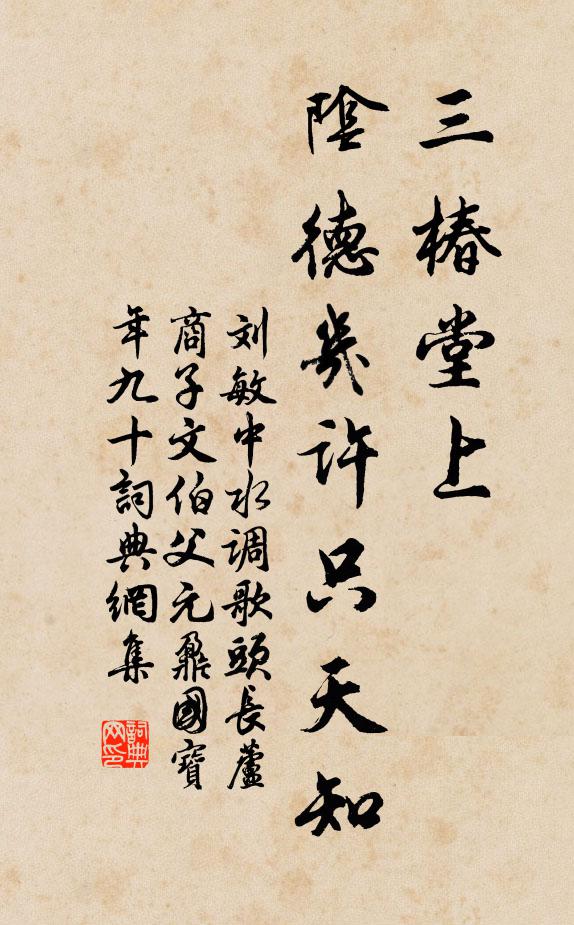 三椿堂上
陰德幾許只天知
刘敏中水调歌頭長蘆
商子文伯父元鼐國寶
年九十詞典網集
詞典
网印